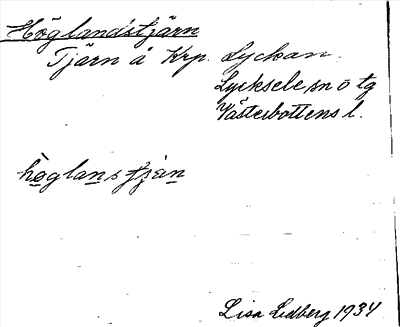 Höglandstjärn
Tjärn å Krp. Lyckan.
Lycksele sn o tg
Västerbottens l.
höglans tjän
Lisa Lidberg 1934